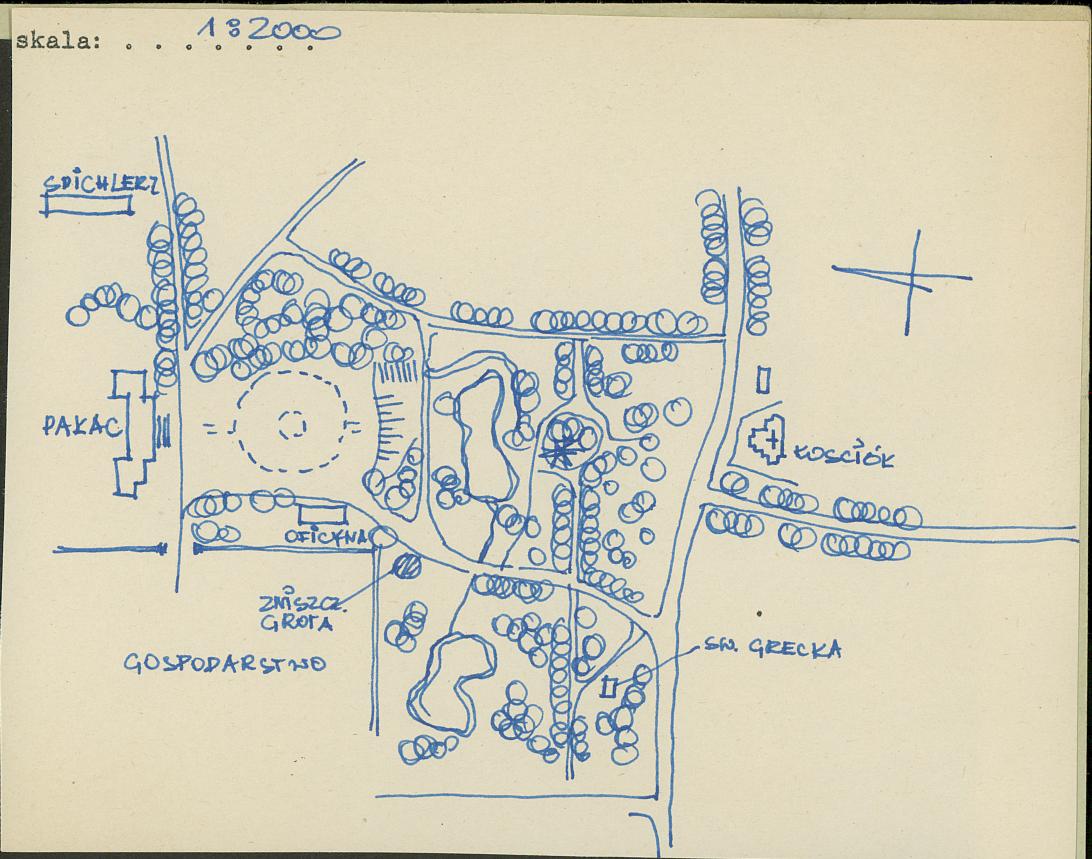 skala: . . . . . . . .
1:2000
SPICHLERZ
PAŁAC
KOŚCIÓŁ
OFICYNA
ZNISZCZ.
GROTA
GOSPODARSTWO
ŚW. GRECKA